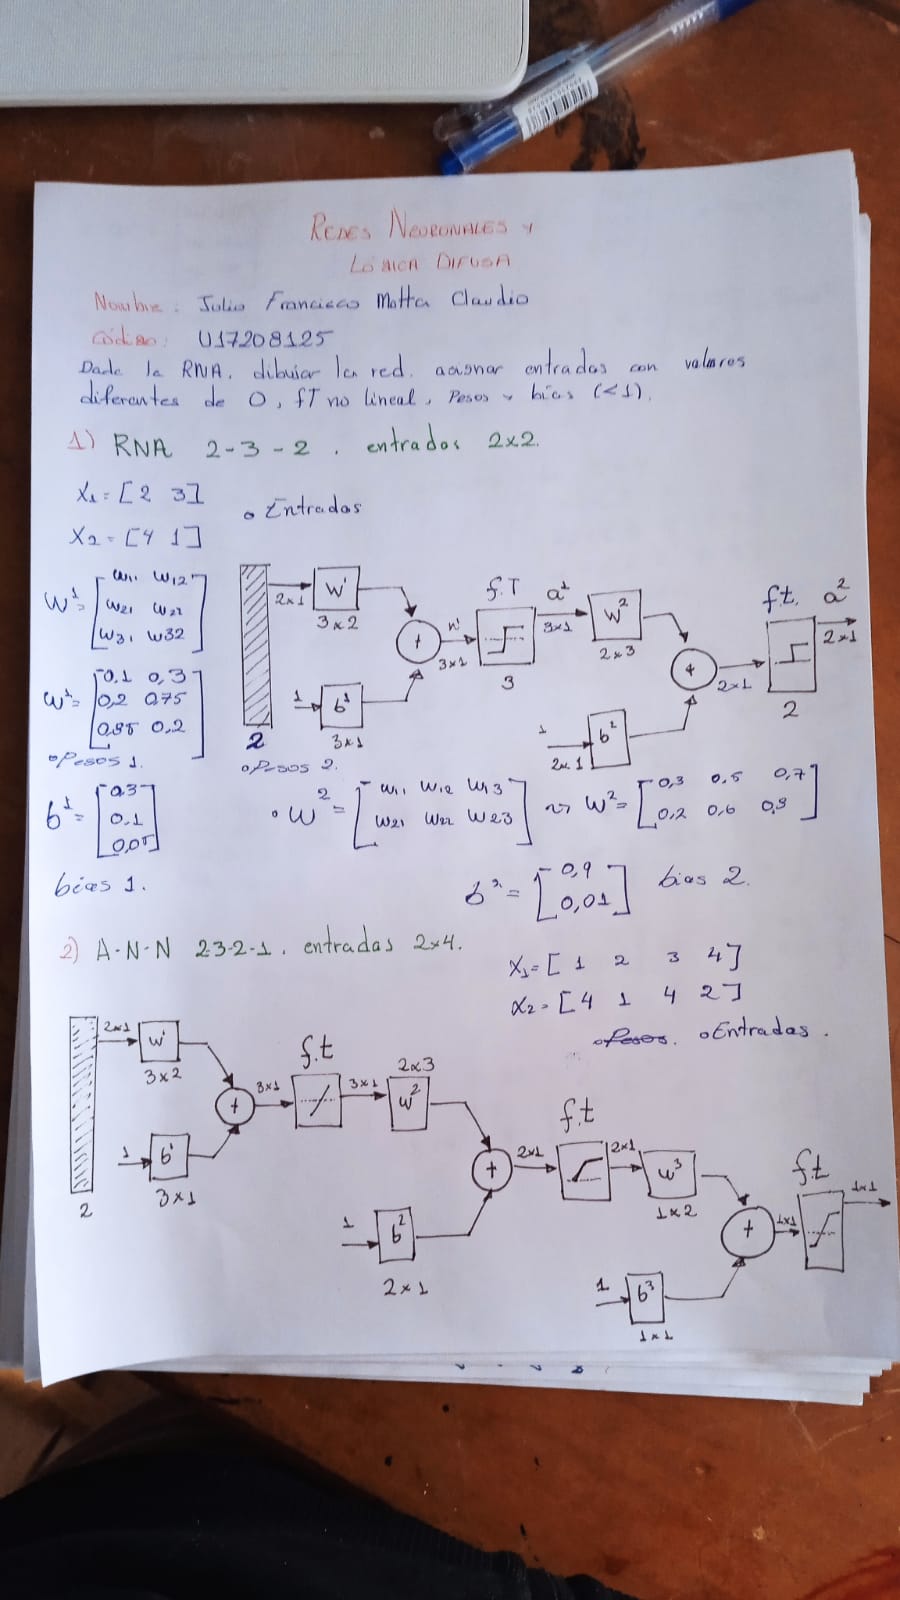 REDES NEURONALES Y
LÓGICA DIFUSA
Nombre: Julio Francisco Motta Claudio
Código: U17208125
Dada la RNA, dibujar la red, asignar entradas con valores
diferentes de 0, fT no lineal, Pesos y bias (<1).
1) RNA 2-3-2, entradas 2x2.
X1 = [2 3]
X2 = [4 1]
o Entradas
W¹ = [w11 w12
w21 w22
w31 w32]
W¹ = [0,1 0,3
0,2 0,75
0,85 0,2]
o Pesos 1.
b¹ = [0,3
0.1
0,05]
bias 1.
2
2x1 W¹ 3x2
1 b¹ 3x1
+ n¹ 3x1 f.T 3 a¹ 3x1
W² 2x3
1 b² 2x1
+ 2x1 f.t. 2 a² 2x1
o Pesos 2.
W² = [w11 w12 w13
w21 w22 w23]
W² = [0,3 0,5 0,7
0,2 0,6 0,9]
b² = [0,9
0,01] bias 2.
2) A-N-N 2-3-2-1, entradas 2x4.
X1 = [1 2 3 4]
X2 = [4 1 4 2]
o Pesos. o Entradas.
2
2x1 W¹ 3x2
1 b¹ 3x1
+ 3x1 f.t 3x1
W² 2x3
1 b² 2x1
+ 2x1 f.t 2x1
W³ 1x2
1 b³ 1x1
+ 1x1 f.t 1x1